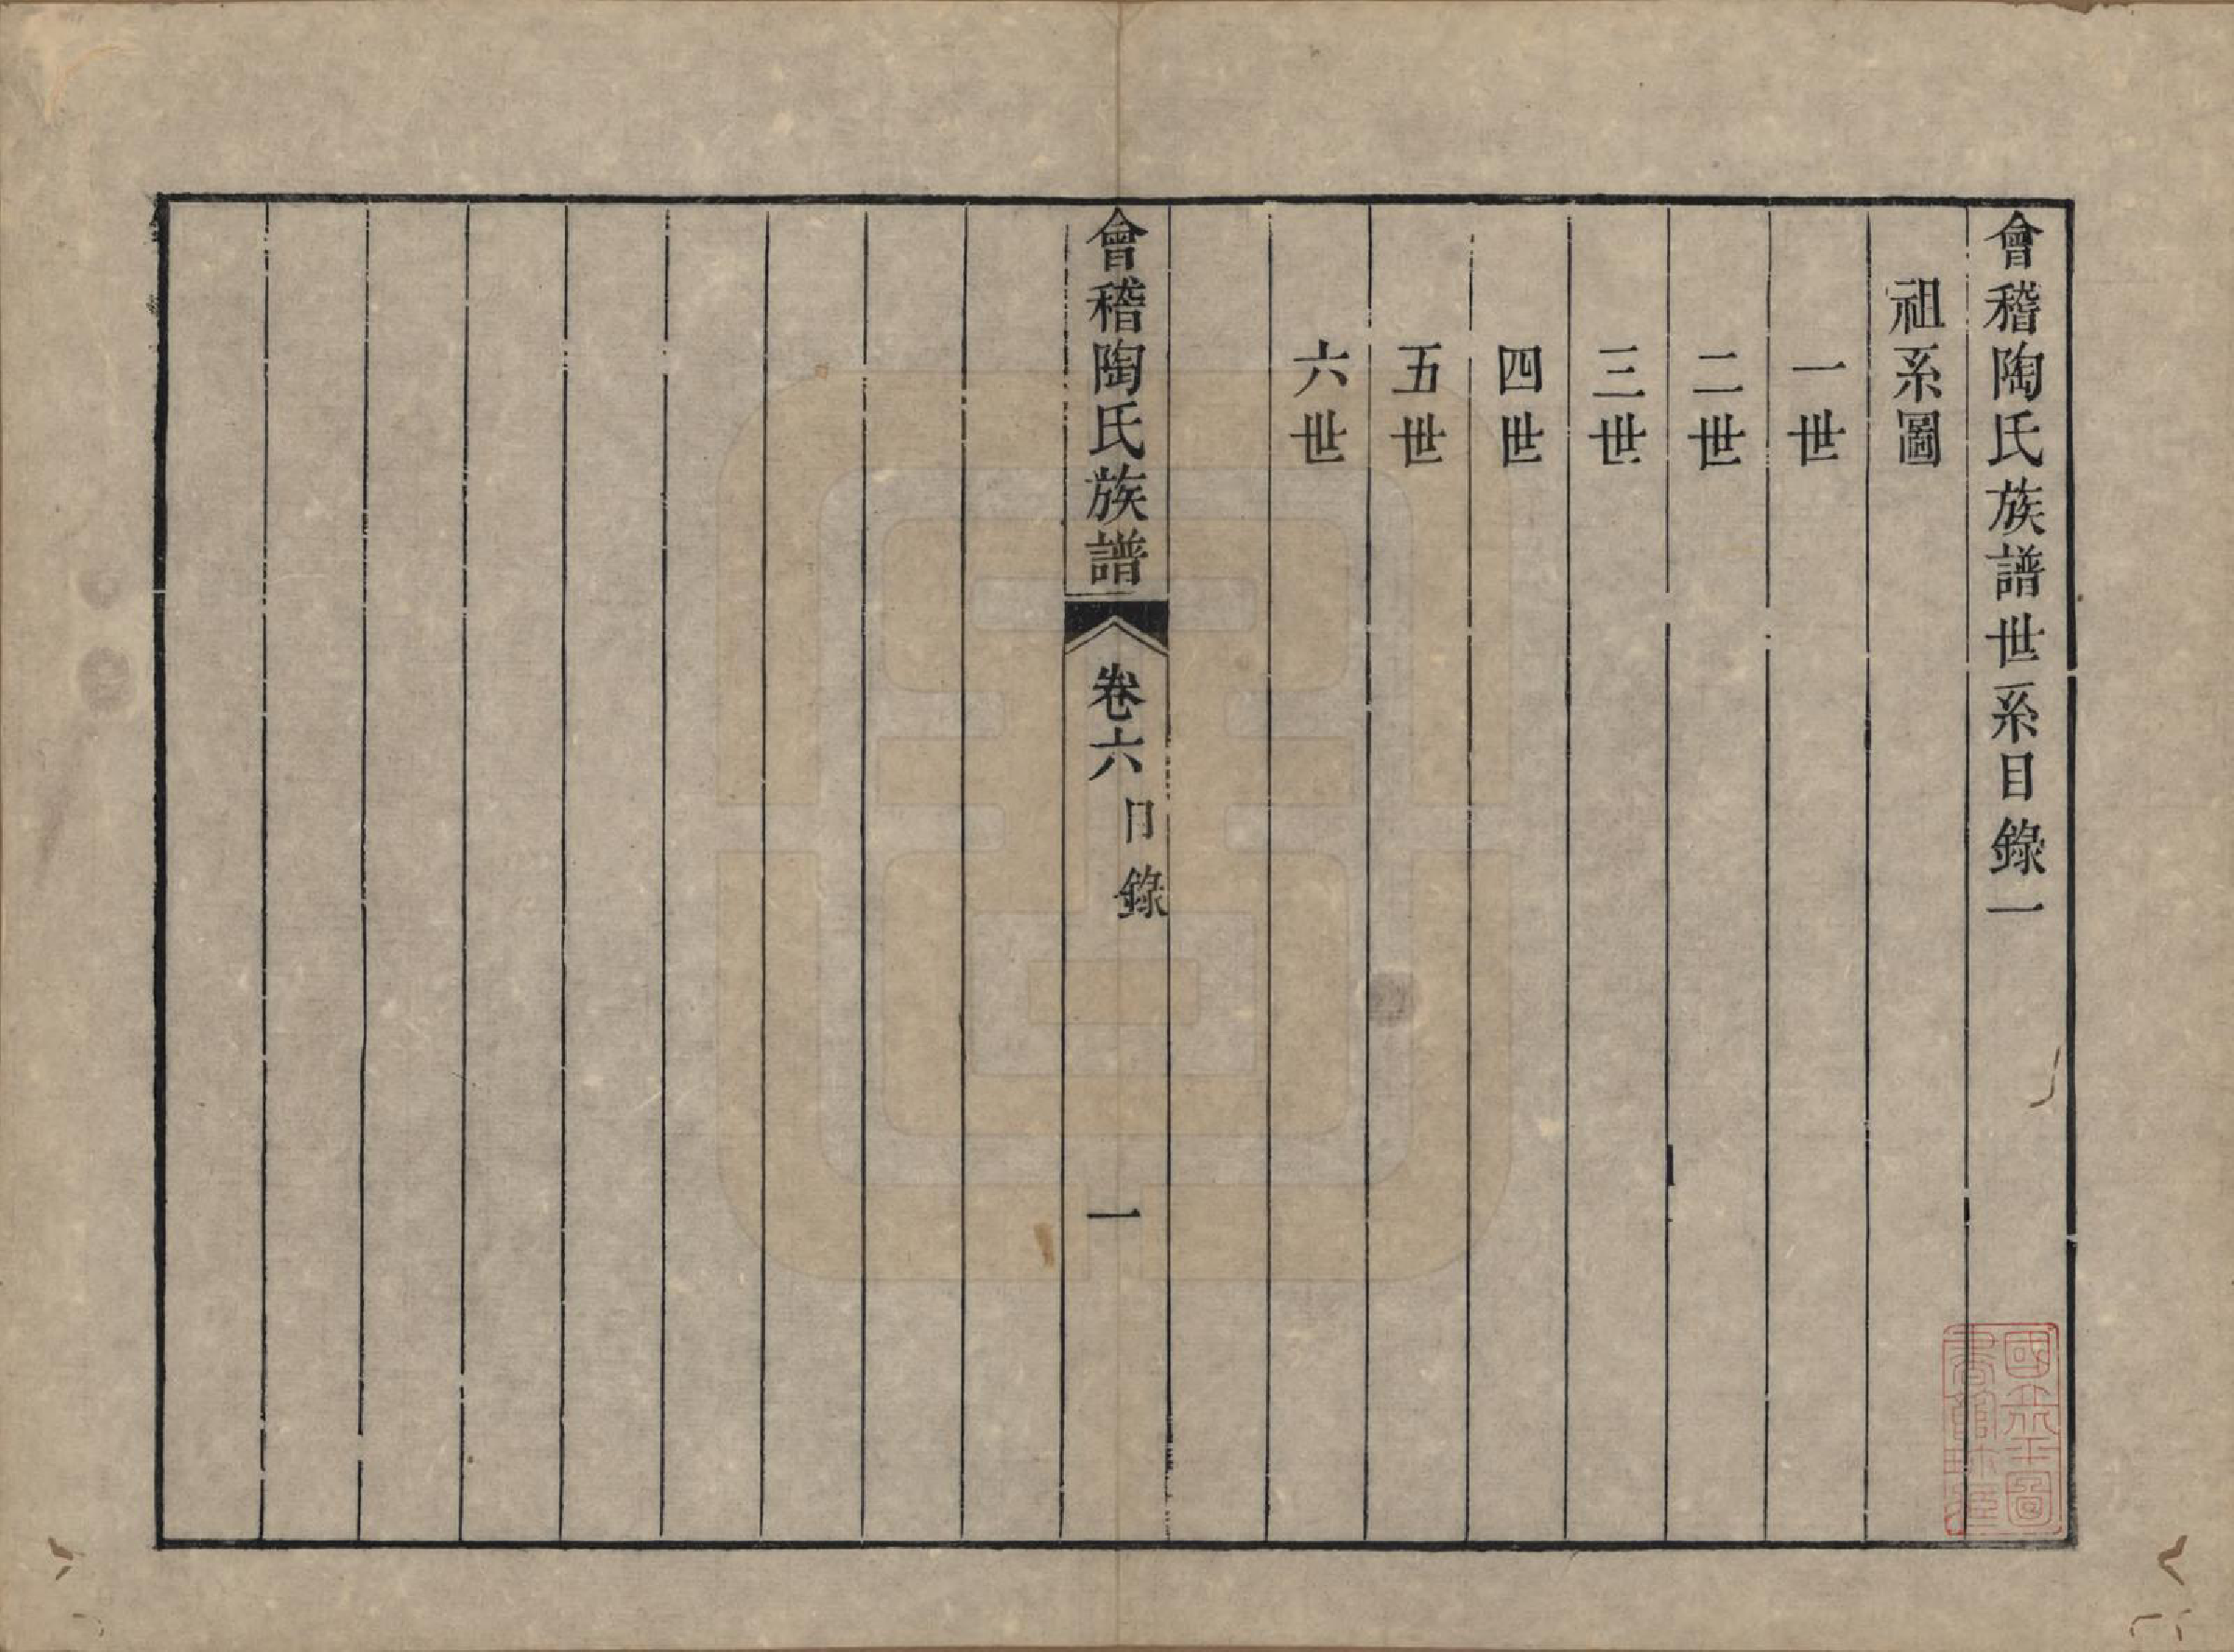 會稽陶氏族譜世系目錄一
祖系圖
一世
二世
三世
四世
五世
六世
會稽陶氏族譜
卷六
目錄
一
國立北平圖
書館珍藏